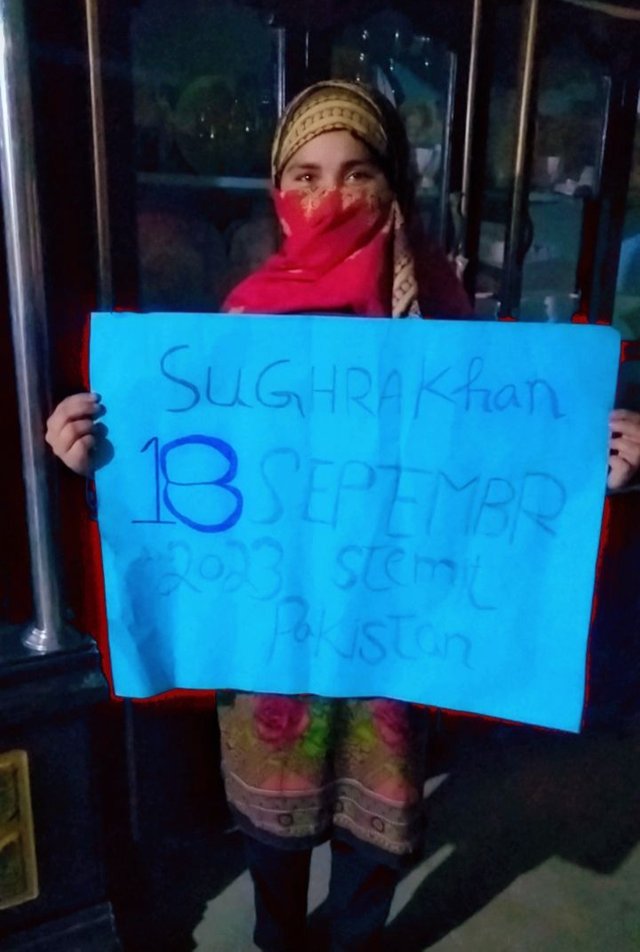 SUGHRA Khan
18 SEPTEMBR
2023 stemit
Pakistan